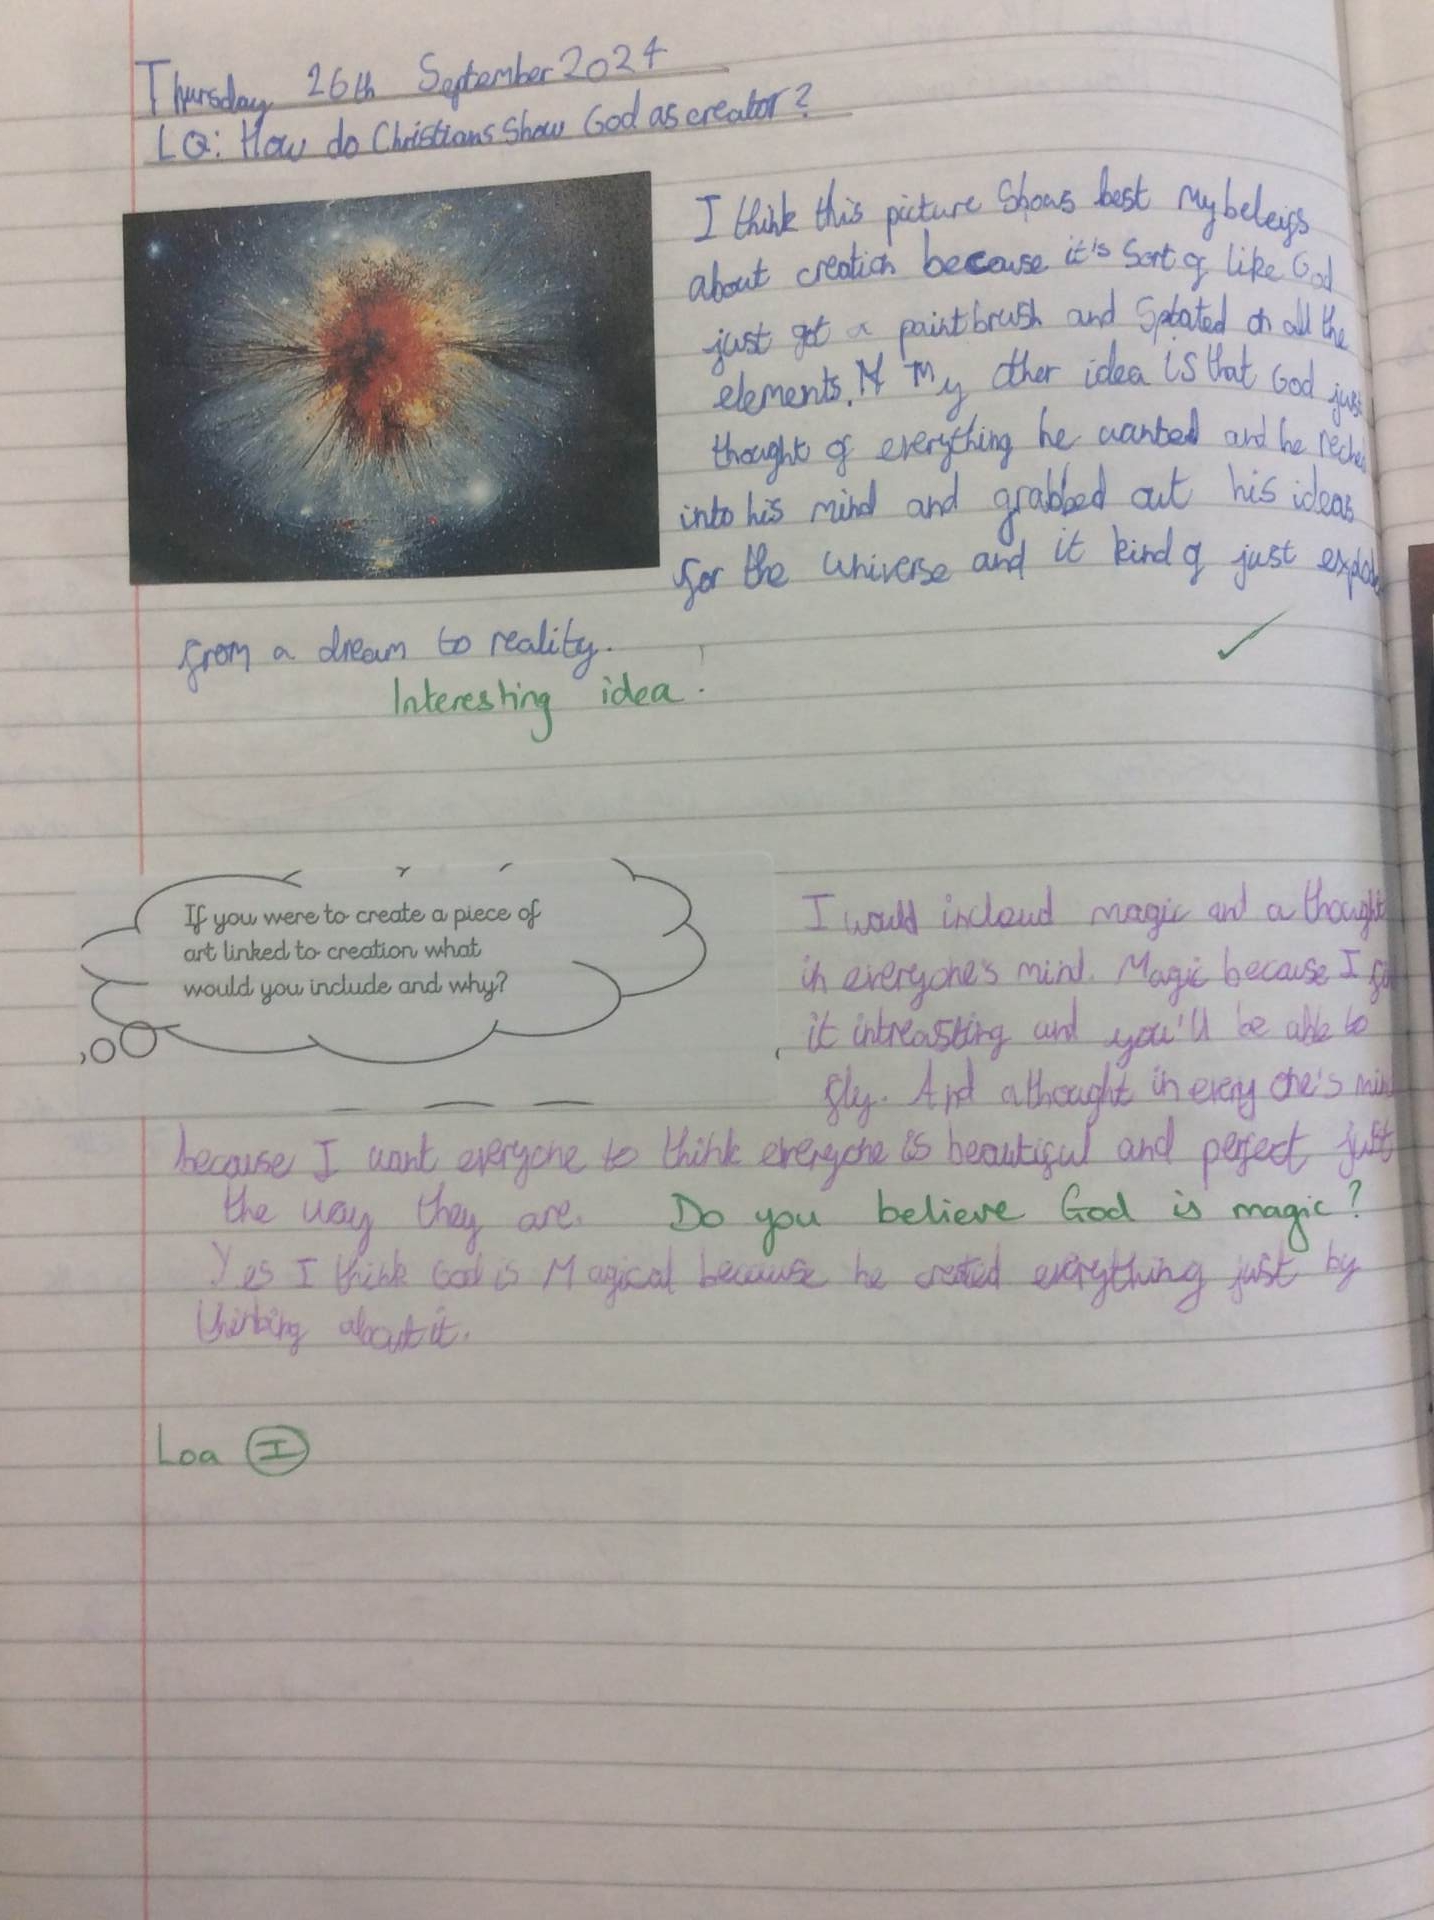 Thursday 26th September 2024
LQ: How do Christians show God as creator?
I think this picture Shows best my beleifs
about creation because it's Sort of like God
just got a paintbrush and Splated on all the
elements. My other idea is that God just
thought of everything he wanted and he
into his mind and grabbed out his ideas
for the universe and it kind of just
from a dream to reality.
Interesting idea.
If you were to create a piece of
art linked to creation what
would you include and why?
I would incloud magic and a thought
in everyone's mind. Magic because I
it intreasting and you'll be able to
fly. And a thought in every one's
because I want everyone to think everyone is beautiful and perfect just
the way they are. Do you believe God is magic?
Yes I think God is Magical because he created everything just by
thinking about it.
Loa I